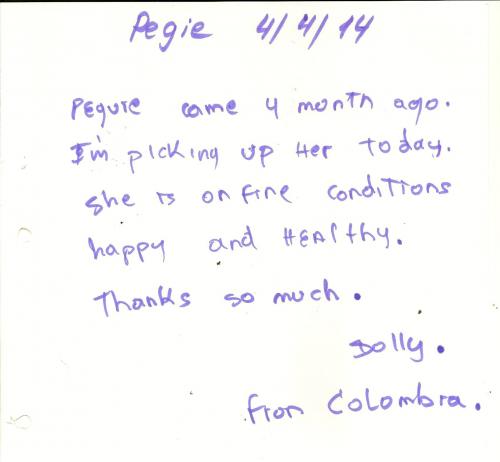 Pegie 4/4/14
PEQUTE came 4 month ago.
I'm picking up Her today.
she is on fine conditions
happy and HEAlthy.
Thanks so much.
Dolly.
from Colombia.